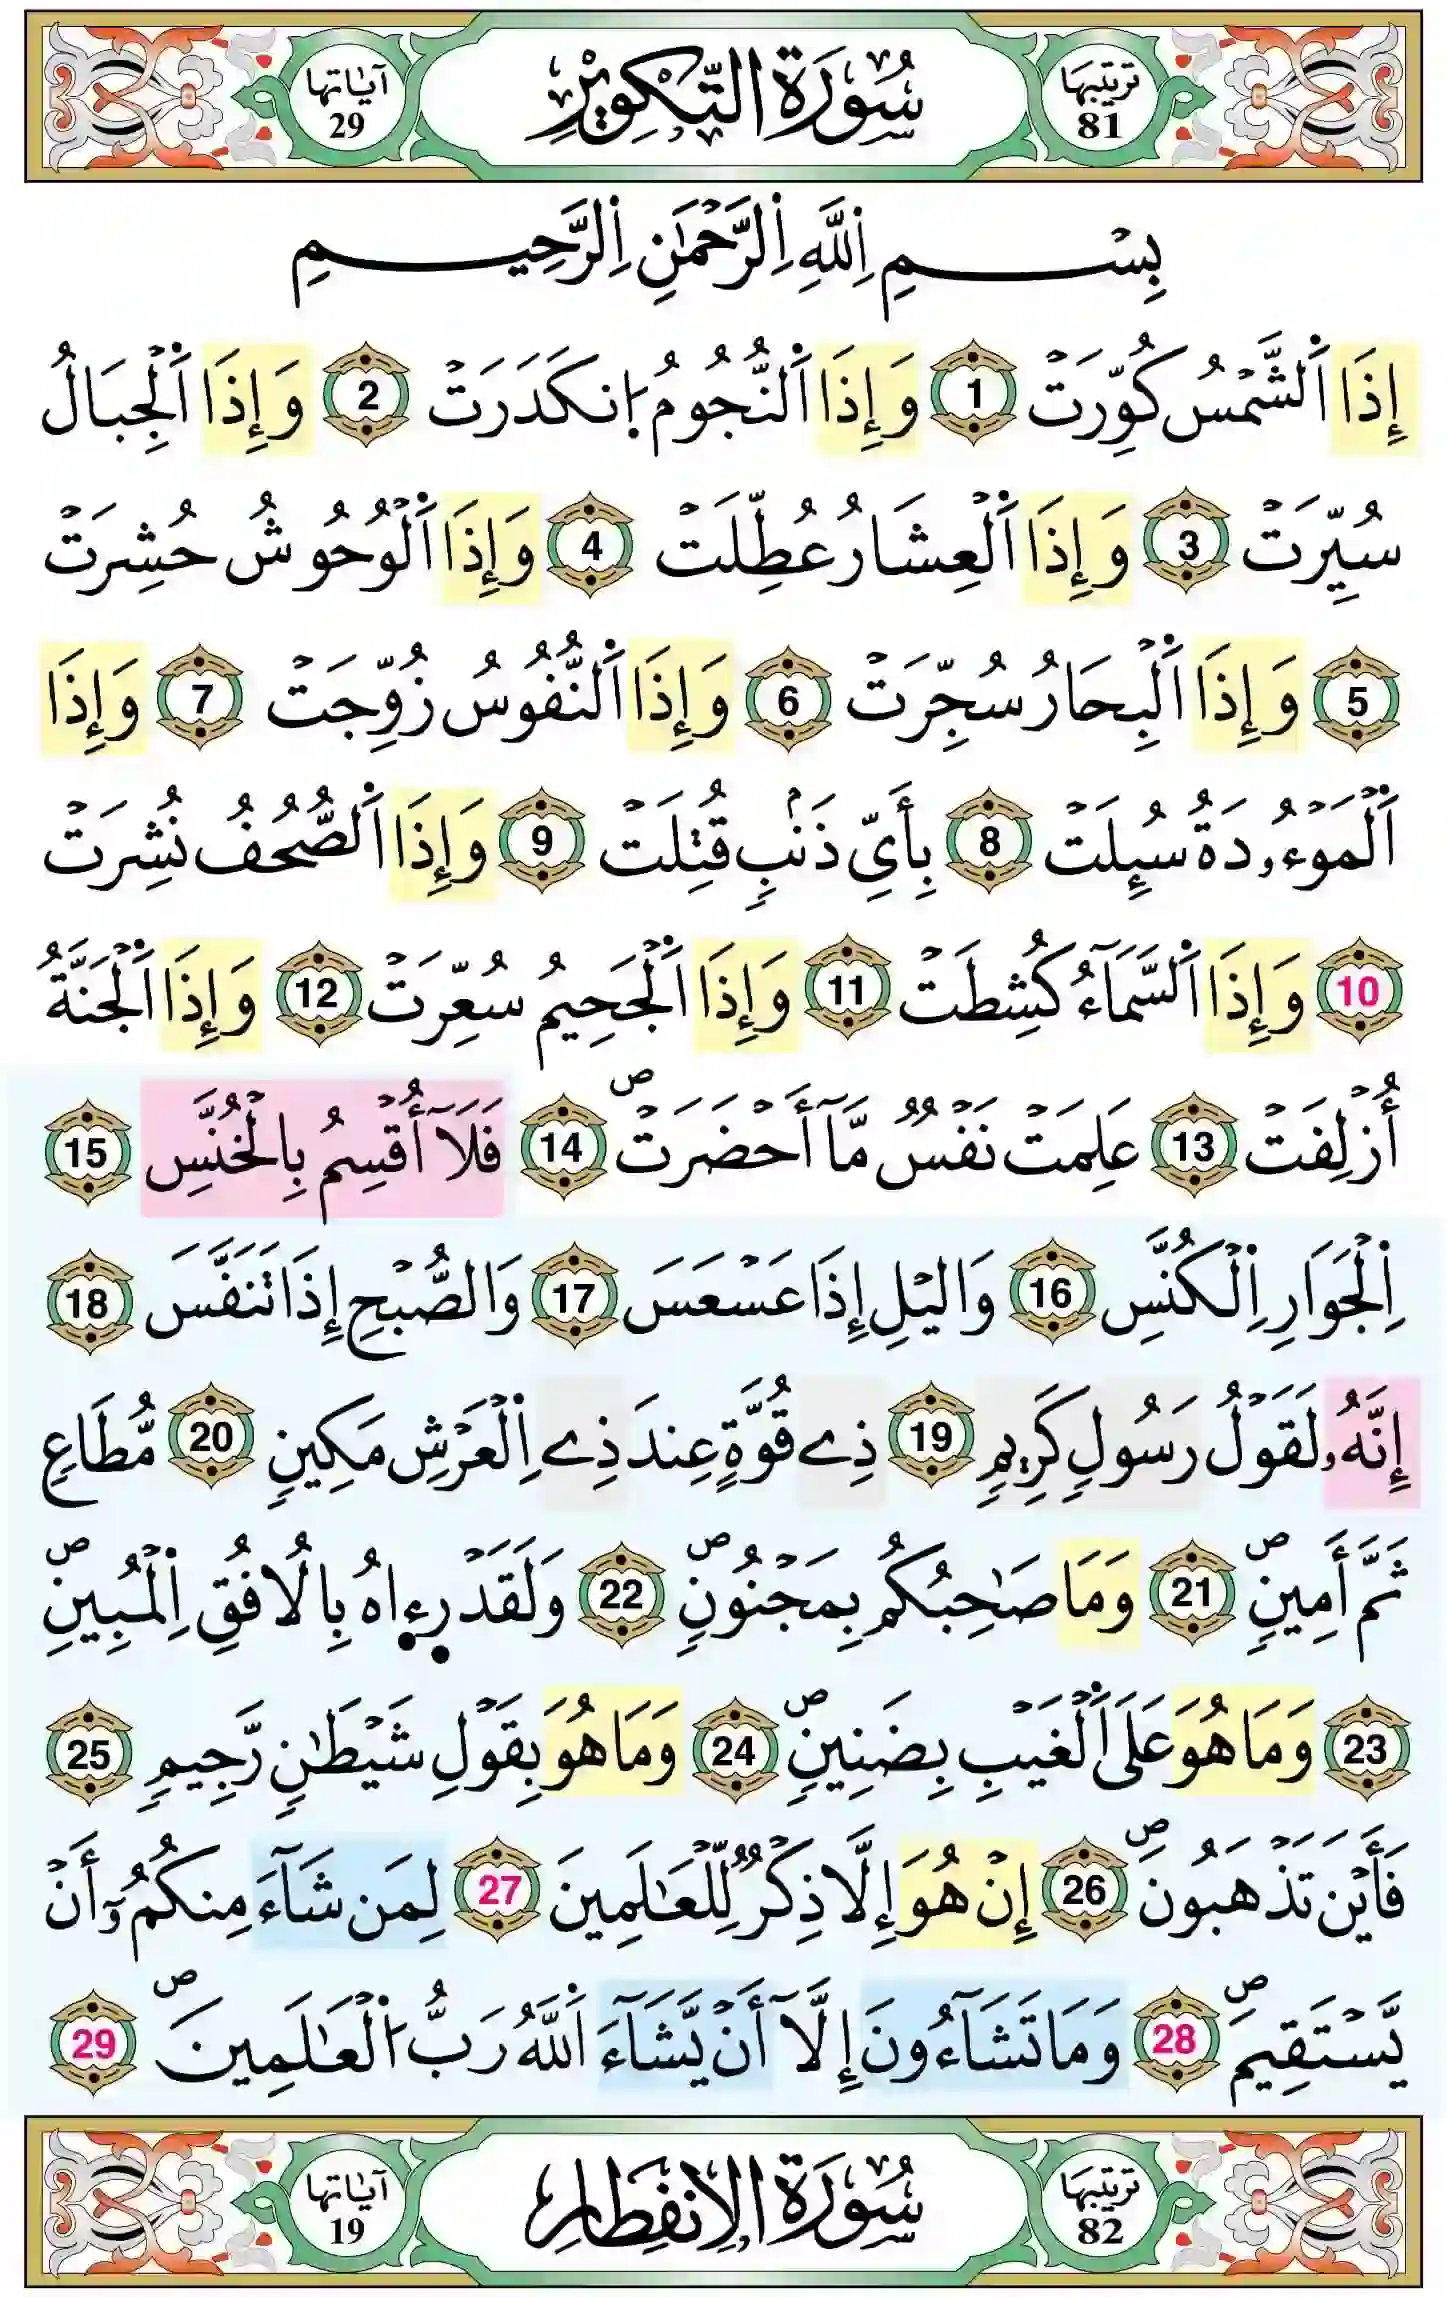 ترتيبها 81 سُورَةُ التَّكْوِيرِ آيَاتها 29
بِسْمِ اِ۬للَّهِ اِ۬لرَّحْمَٰنِ اِ۬لرَّحِيمِ
إِذَا اَ۬لشَّمْسُ كُوِّرَتْ 1 وَإِذَا اَ۬لنُّجُومُ اُ۪نكَدَرَتْ 2 وَإِذَا اَ۬لْجِبَالُ
سُيِّرَتْ 3 وَإِذَا اَ۬لْعِشَارُ عُطِّلَتْ 4 وَإِذَا اَ۬لْوُحُوشُ حُشِرَتْ
5 وَإِذَا اَ۬لْبِحَارُ سُجِّرَتْ 6 وَإِذَا اَ۬لنُّفُوسُ زُوِّجَتْ 7 وَإِذَا
اَ۬لْمَوْءُۥدَةُ سُئِلَتْ 8 بِأَيِّ ذَنۢبٍ قُتِلَتْ 9 وَإِذَا اَ۬لصُّحُفُ نُشِرَتْ
10 وَإِذَا اَ۬لسَّمَآءُ كُشِطَتْ 11 وَإِذَا اَ۬لْجَحِيمُ سُعِّرَتْ 12 وَإِذَا اَ۬لْجَنَّةُ
أُزْلِفَتْ 13 عَلِمَتْ نَفْسٌ مَّآ أَحْضَرَتْ ص 14 فَلَآ أُقْسِمُ بِالْخُنَّسِ 15
اِ۬لْجَوَارِ اِ۬لْكُنَّسِ 16 وَاليْلِ إِذَا عَسْعَسَ 17 وَالصُّبْحِ إِذَا تَنَفَّسَ 18
إِنَّهُۥ لَقَوْلُ رَسُولٍ كَرِيمٍ 19 ذِے قُوَّةٍ عِندَ ذِے اِ۬لْعَرْشِ مَكِينٍ 20 مُّطَاعٍ
ثَمَّ أَمِينٍ ص 21 وَمَا صَٰحِبُكُم بِمَجْنُونٍ ص 22 وَلَقَدْ رِء۪اهُ بِالُافُقِ اِ۬لْمُبِينِ ص
23 وَمَا هُوَ عَلَى اَ۬لْغَيْبِ بِضَنِينٍ ص 24 وَمَا هُوَ بِقَوْلِ شَيْطَٰنٍ رَّجِيمٍ 25
فَأَيْنَ تَذْهَبُونَ ص 26 إِنْ هُوَ إِلَّا ذِكْرٌ لِّلْعَٰلَمِينَ 27 لِمَن شَآءَ مِنكُمُۥٓ أَنْ
يَّسْتَقِيمَ ص 28 وَمَا تَشَآءُونَ إِلَّآ أَنْ يَّشَآءَ اَ۬للَّهُ رَبُّ اُ۬لْعَٰلَمِينَ ص 29
ترتيبها 82 سُورَةُ الِانفِطَارِ آيَاتها 19